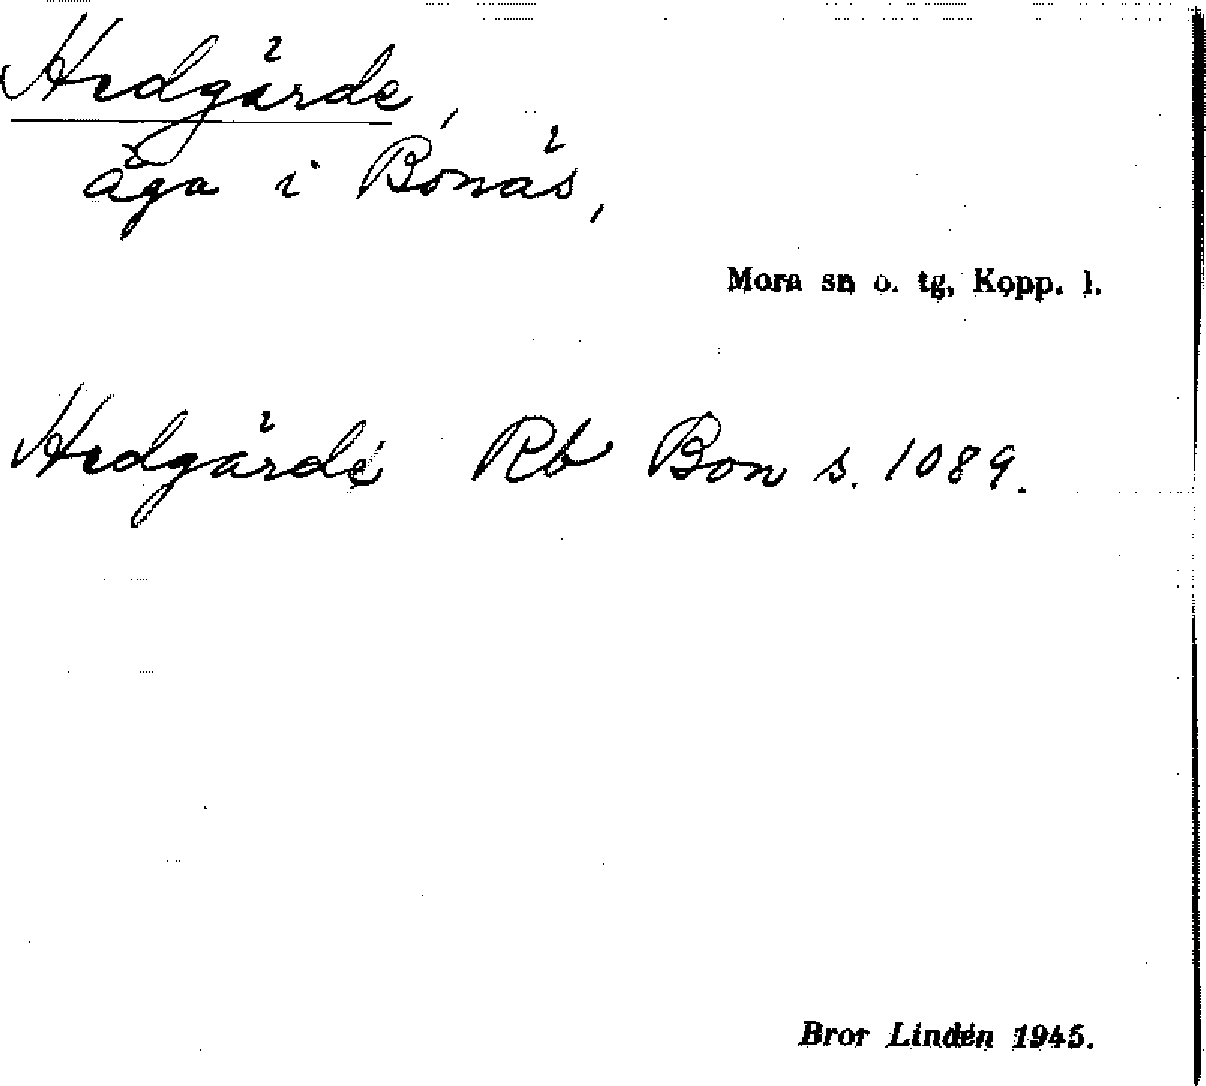 Hedgärde,
äga i Bonäs,
Mora sn o. tg, Kopp. l.
Hedgärde Rb Bon s. 1089.
Bror Lindén 1945.